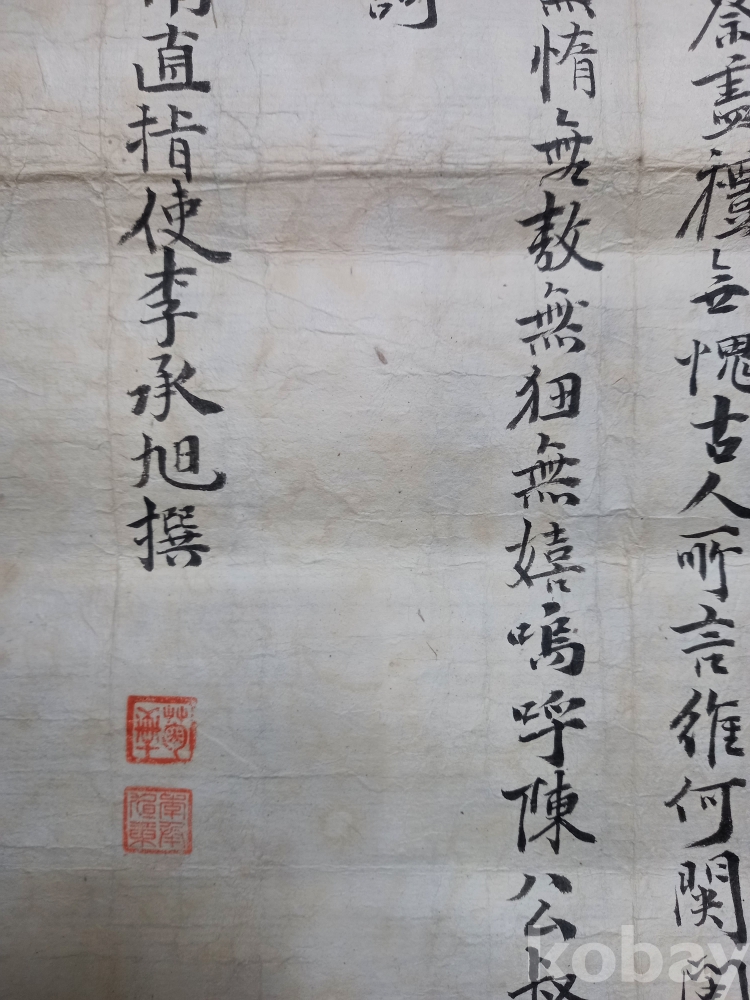 祭盡禮無愧古人所言維何
無惰無敖無狃無嬉嗚呼陳公
直指使李承旭撰
kobay